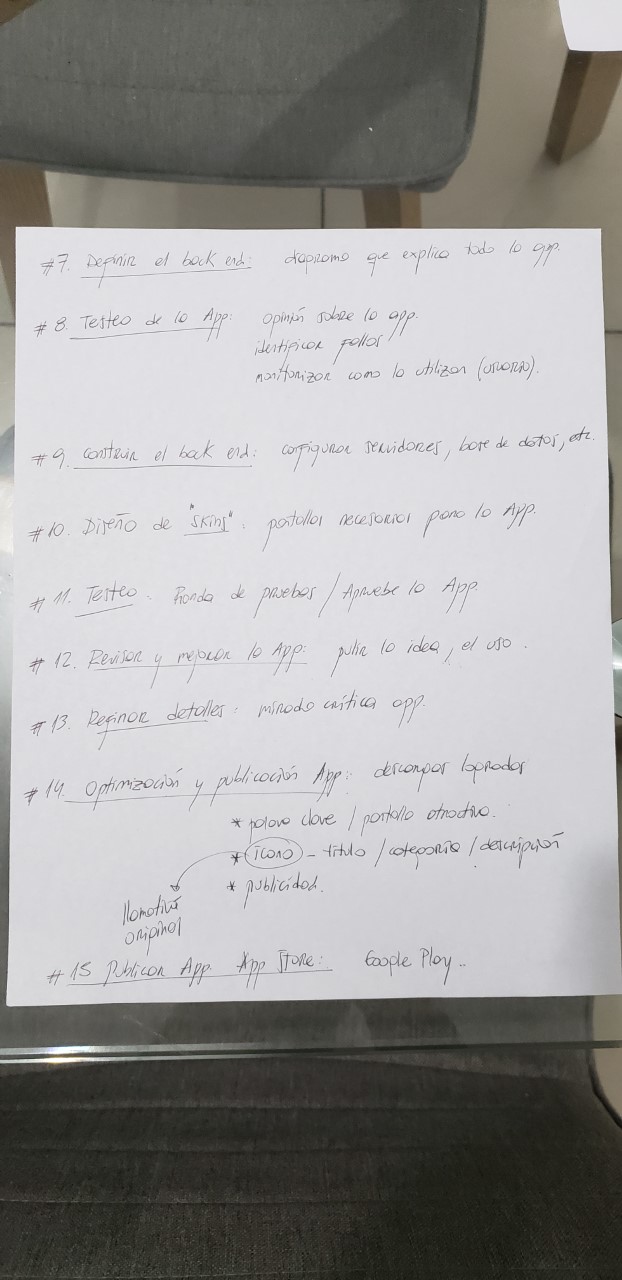 #7. Definir el back end: diagrama que explica todo la app.
#8. Testeo de la App: opinión sobre la app.
identificar fallos
monitorizar como la utilizan (usuario).
#9. construir el back end: configurar servidores, base de datos, etc.
#10. Diseño de "skins": pantallas necesarias para la App.
#11. Testeo: Ronda de pruebas / Apruebe la App.
#12. Revisar y mejorar la App: pulir la idea, el uso.
#13. Refinar detalles: mirada crítica app.
#14. Optimización y publicación App: descargas logradas
* palava clave / pantalla atractiva.
* icono - titulo / categoria / descripción
* publicidad.
llamativa
original
#15 Publicar App. App Store: Google Play..